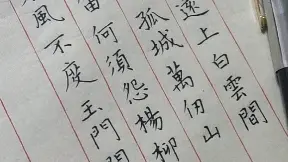 遠上白雲間
孤城萬仞山
何須怨楊柳
風不度玉門